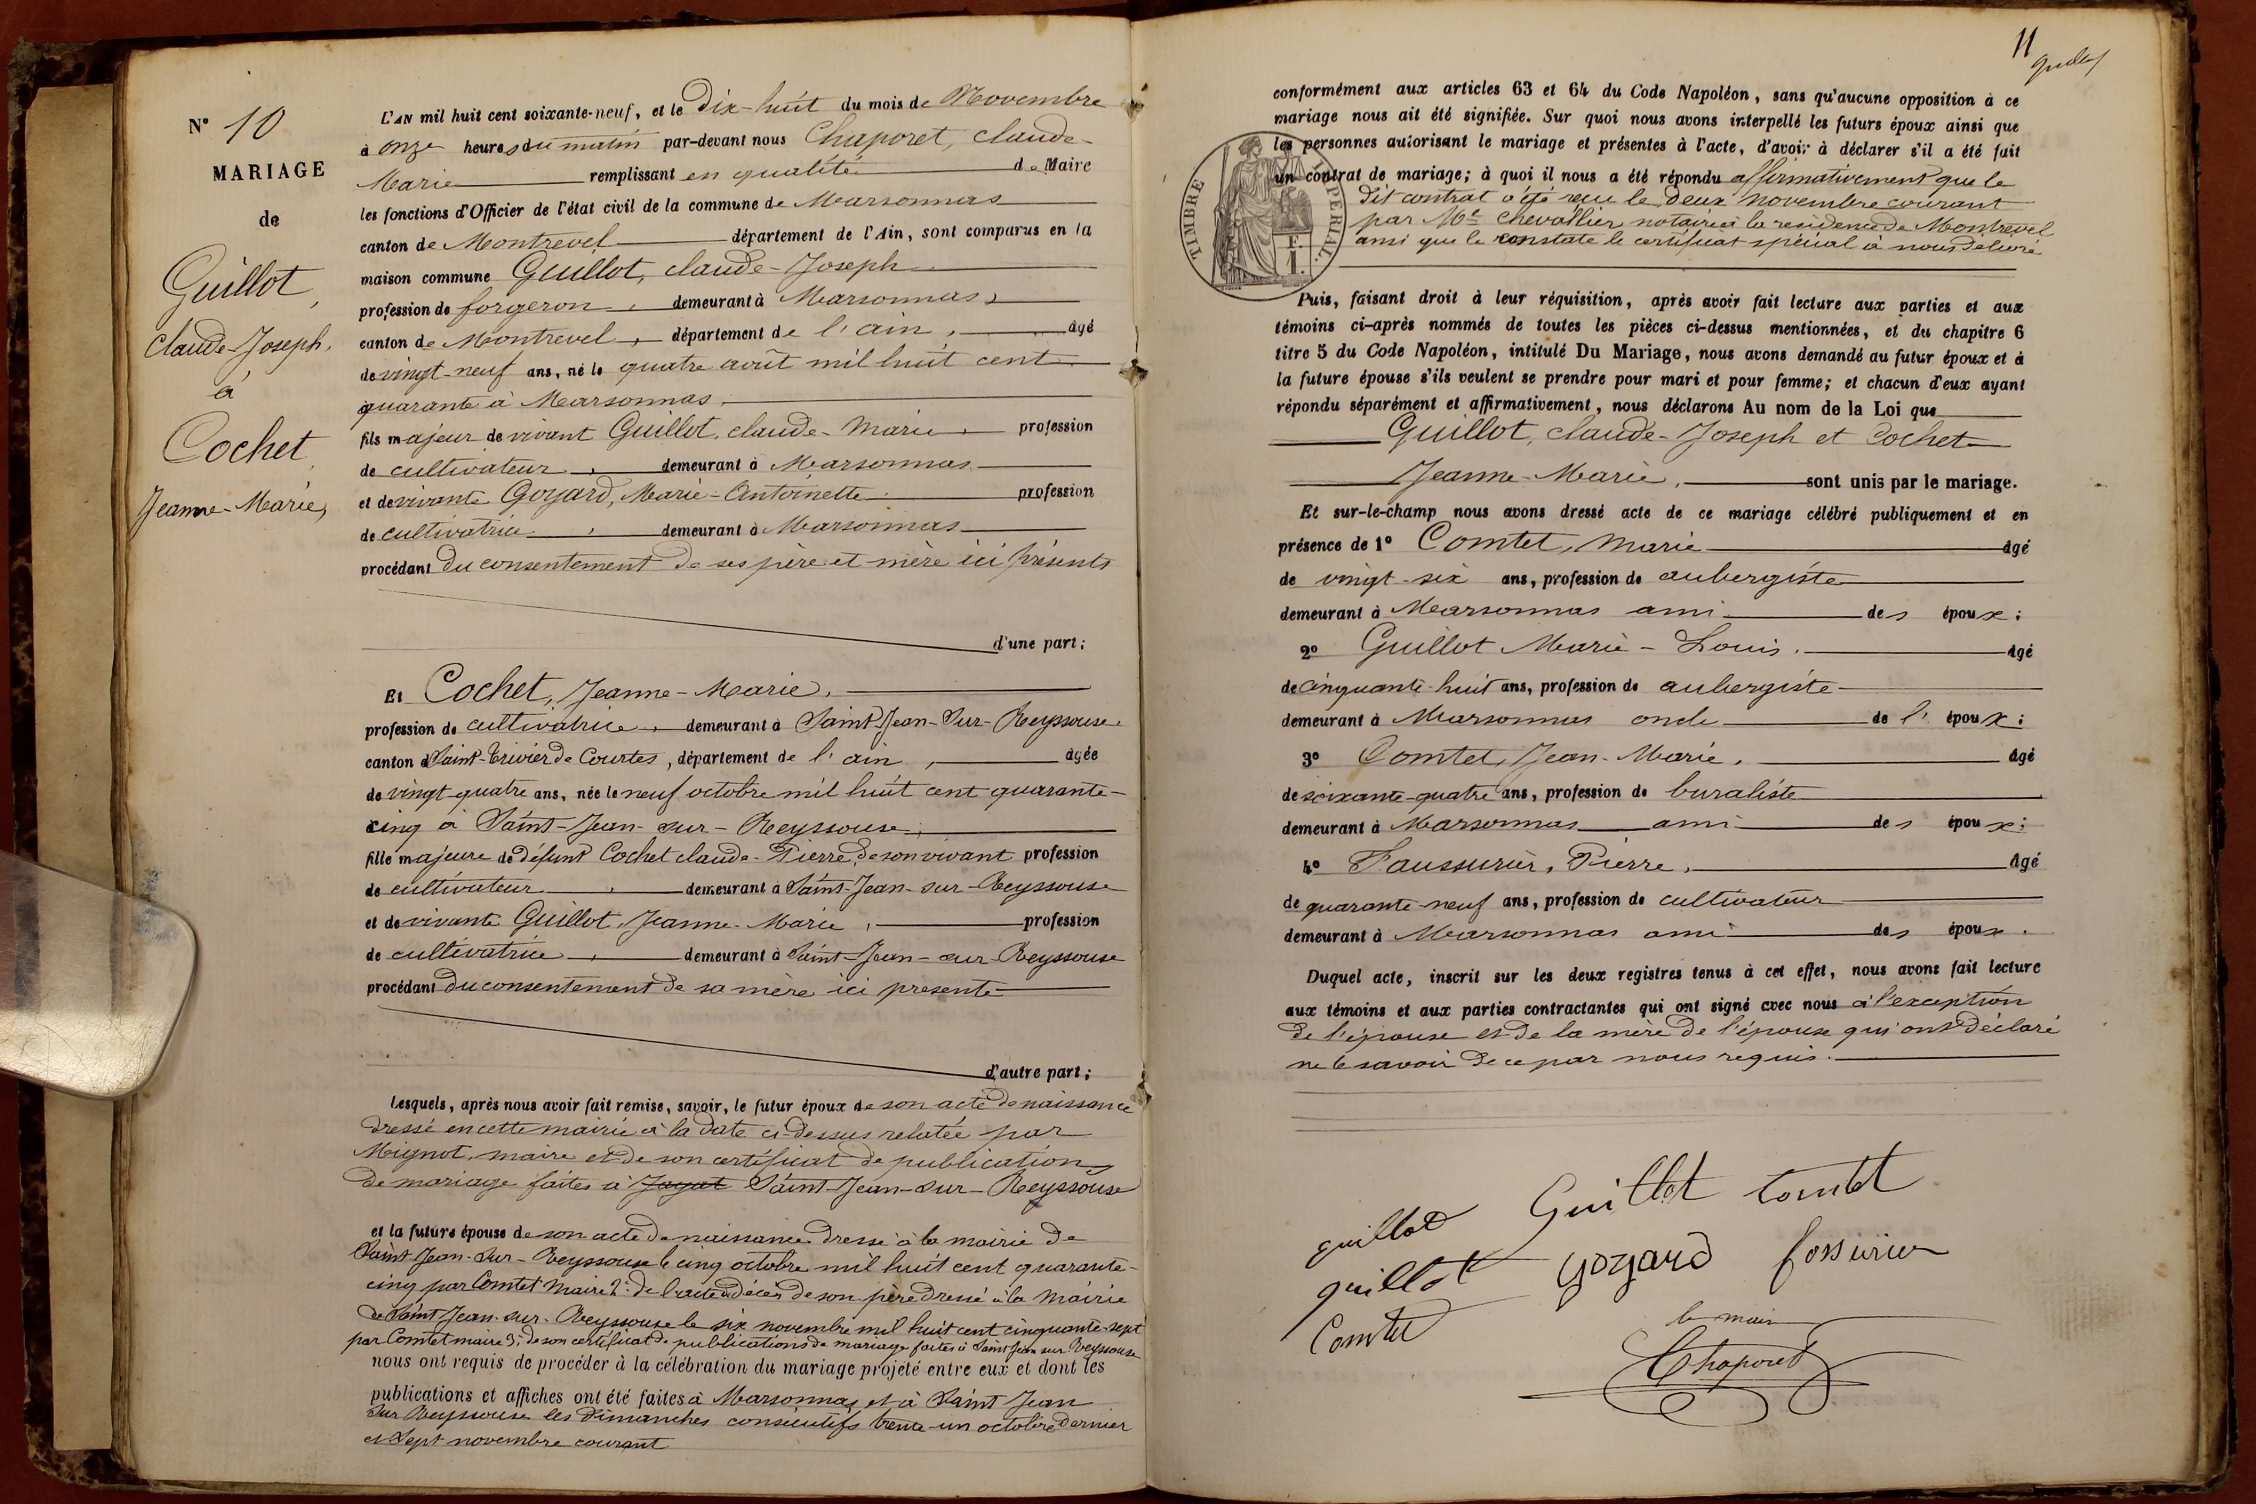 N° 10
MARIAGE
de
Guillot,
Claude-Joseph,
à
Cochet,
Jeanne-Marie,
L'AN mil huit cent soixante-neuf, et le Dix-huit du mois de Novembre
à onze heures du matin par-devant nous Chaporet, Claude-
Marie remplissant en qualité de Maire
les fonctions d'Officier de l'état civil de la commune de Marsonnas
canton de Montrevel département de l'Ain, sont comparus en la
maison commune Guillot, Claude-Joseph
profession de forgeron, demeurant à Marsonnas,
canton de Montrevel, département de l'ain, âgé
de vingt-neuf ans, né le quatre août mil huit cent
quarante à Marsonnas,
fils majeur de vivant Guillot, claude-Marie, profession
de cultivateur, demeurant à Marsonnas
et de vivante Goyard, Marie-Antoinette profession
de cultivatrice, demeurant à Marsonnas
procédant du consentement de ses père et mère ici présents
d'une part;
Et Cochet, Jeanne-Marie,
profession de cultivatrice, demeurant à Saint-Jean-Sur-Reyssouse
canton de Saint-Trivier de Courtes, département de l'ain, âgée
de vingt-quatre ans, née le neuf octobre mil huit cent quarante-
cinq à Saint-Jean-sur-Reyssouse,
fille majeure de défunt Cochet claude-Pierre, de son vivant profession
de cultivateur, demeurant à Saint-Jean-sur-Reyssouse
et de vivante Guillot, Jeanne-Marie, profession
de cultivatrice, demeurant à Saint-Jean-sur-Reyssouse
procédant du consentement de sa mère ici presente
d'autre part;
Lesquels, après nous avoir fait remise, savoir, le futur époux de son acte de naissance
dressé en cette mairie à la date ci-dessus relatée par
Mignot, maire et de son certificat de publications
de mariage faites à Jayat Saint-Jean-sur-Reyssouse
et la future épouse de son acte de naissance dressé à la mairie de
Saint-Jean-Sur-Reyssouse le cinq octobre mil huit cent quarante-
cinq par Comtet Maire 2° de l'acte de décès de son père dressé à la Mairie
de Saint Jean-sur-Reyssouse le six novembre mil huit cent cinquante-sept
par Comtet maire 3° de son certificat de publications de mariage faites à Saint Jean sur Reyssouse
nous ont requis de procéder à la célébration du mariage projeté entre eux et dont les
publications et affiches ont été faites à Marsonnas et à Saint Jean
sur Reyssouse les dimanches consécutifs trente-un octobre dernier
et Sept novembre courant
11
conformément aux articles 63 et 64 du Code Napoléon, sans qu'aucune opposition à ce
mariage nous ait été signifiée. Sur quoi nous avons interpellé les futurs époux ainsi que
les personnes autorisant le mariage et présentes à l'acte, d'avoir à déclarer s'il a été fait
un contrat de mariage; à quoi il nous a été répondu affirmativement que le
dit contrat a été reçu le deux novembre courant
par Me Chevallier notaire à la résidence de Montrevel
ainsi que le constate le certificat spécial à nous délivré
TIMBRE IMPERIAL.
F.
1.
Puis, faisant droit à leur réquisition, après avoir fait lecture aux parties et aux
témoins ci-après nommés de toutes les pièces ci-dessus mentionnées, et du chapitre 6
titre 5 du Code Napoléon, intitulé Du Mariage, nous avons demandé au futur époux et à
la future épouse s'ils veulent se prendre pour mari et pour femme; et chacun d'eux ayant
répondu séparément et affirmativement, nous déclarons Au nom de la Loi que
Guillot, claude-Joseph et Cochet
Jeanne-Marie, sont unis par le mariage.
Et sur-le-champ nous avons dressé acte de ce mariage célébré publiquement et en
présence de 1° Comtet, Marie âgé
de vingt-six ans, profession de aubergiste
demeurant à Marsonnas ami des époux;
2° Guillot Marie-Louis, âgé
de cinquante-huit ans, profession de aubergiste
demeurant à Marsonnas oncle de l'époux;
3° Comtet, Jean-Marie, âgé
de soixante-quatre ans, profession de buraliste
demeurant à Marsonnas ami des époux;
4° Faussurier, Pierre, âgé
de quarante-neuf ans, profession de cultivateur
demeurant à Marsonnas ami des époux.
Duquel acte, inscrit sur les deux registres tenus à cet effet, nous avons fait lecture
aux témoins et aux parties contractantes qui ont signé avec nous à l'exception
de l'épouse et de la mère de l'épouse qui ont déclaré
ne le savoir de ce par nous requis.
guillot Guillot Comtet
guillot goyard fossurier
Comtet
le maire
Chaporet